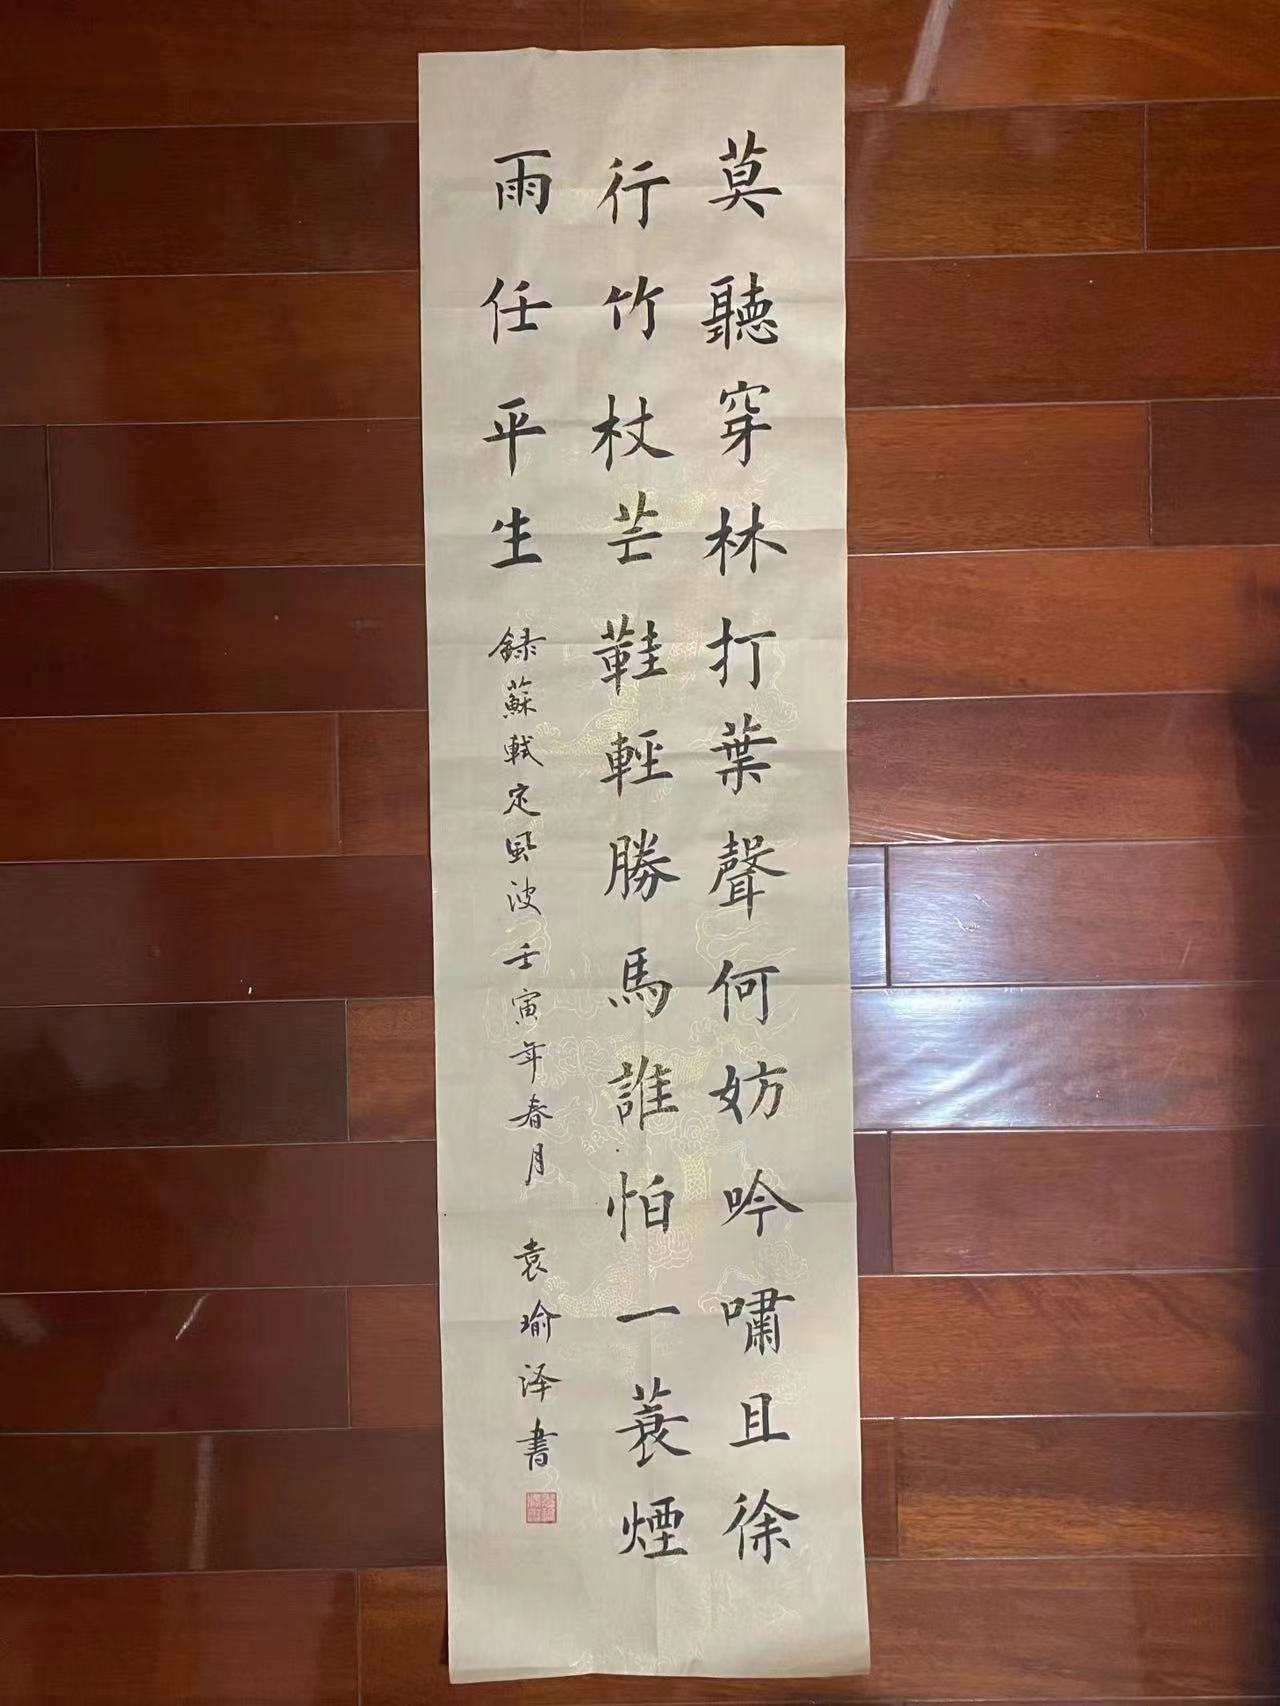 莫聽穿林打葉聲何妨吟嘯且徐
行竹杖芒鞋輕勝馬誰怕一蓑煙
雨任平生
録蘇軾定風波壬寅年春月 袁瑜泽書